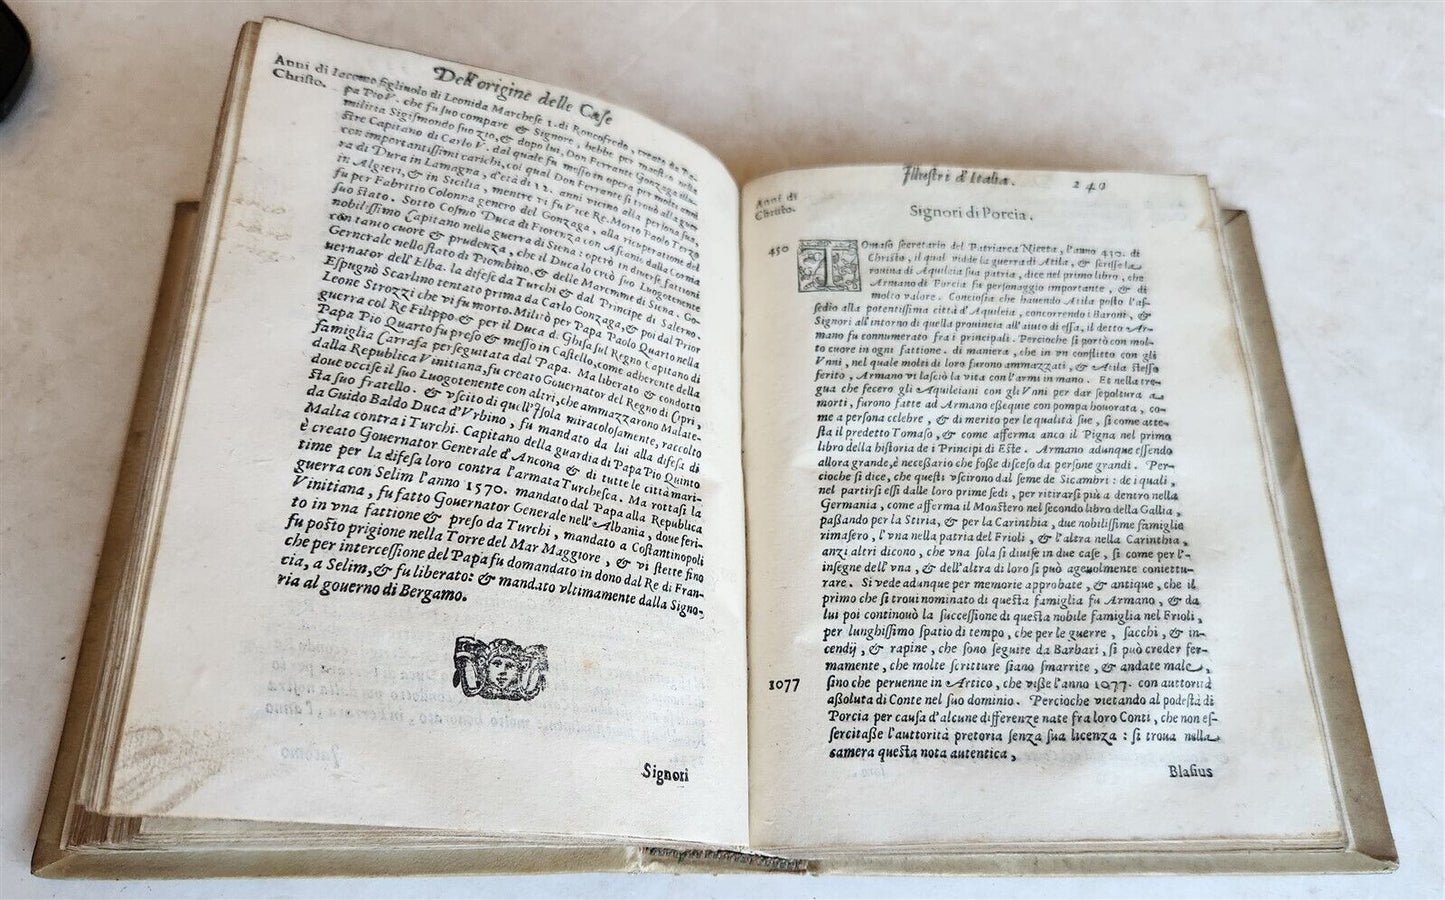 Dell'origine delle Case
Anni di
Christo.
Iacomo figliuolo di Leonida Marchese 1. di Roncofredo, creato da Pa-
pa Pio V. che fu suo compare & Signore, hebbe per maestro nella
militia Sigismondo suo zio, & dopo lui, Don Ferrante Gonzaga illu-
stre Capitano di Carlo V. dal quale fu messo in opera per molti anni
con importantissimi carichi, col qual Don Ferrante si trouò alla guer-
ra di Dura in Lamagna, d'età di 12. anni vicino alla persona sua,
in Algieri, & in Sicilia, mentre vi fu Vice Re. Morto Paolo Terzo
fu per Fabritio Colonna genero del Gonzaga, alla ricuperatione del
suo stato. Sotto Cosmo Duca di Fiorenza con Ascanio dalla Cornia
nobilissimo Capitano nella guerra di Siena: operò in diuerse fattioni
con tanto cuore & prudenza, che il Duca lo creò suo Luogotenente
Gernerale nello stato di Piombino, & delle Maremme di Siena. Go-
uernator dell'Elba. la difese da Turchi & dal Principe di Salerno.
Espugnò Scarlino tentato prima da Carlo Gonzaga, & poi dal Prior
Leone Strozzi che vi fu morto. Militò per Papa Paolo Quarto nella
guerra col Re Filippo & per il Duca d. Ghisa sul Regno Capitano di
Papa Pio Quarto fu preso & messo in Castello, come adherente della
famiglia Carrafa perseguitata dal Papa. Ma liberato & condotto
dalla Republica Vinitiana, fu creato Gouernator del Regno di Cipri,
doue occise il suo Luogotenente con altri, che ammazzarono Malate-
sta suo fratello. & vscito di quell'Isola miracolosamente, raccolto
da Guido Baldo Duca d'Vrbino, fu mandato da lui alla difesa di
Malta contra i Turchi. Capitano della guardia di Papa Pio Quinto
è creato Gouernator Generale d'Ancona & di tutte le città mari-
time per la difesa loro contra l'armata Turchesca. Ma rottasi la
guerra con Selim l'anno 1570. mandato dal Papa alla Republica
Vinitiana, fu fatto Gouernator Generale nell'Albania, doue feri-
to in vna fattione & preso da Turchi, mandato a Costantinopoli
fu posto prigione nella Torre del Mar Maggiore, & vi stette fino
che per intercessione del Papa fu domandato in dono dal Re di Fran-
cia, a Selim, & fu liberato: & mandato vltimamente dalla Signo-
ria al gouerno di Bergamo.
Signori
Illustri d'Italia.
240
Anni di
Christo.
Signori di Porcia.
450
TOmaso secretario del Patriarca Niceta, l'anno 450. di
Christo, il qual vidde la guerra di Atila, & scrisse la
rouina di Aquileia sua patria, dice nel primo libro, che
Armano di Porcia fu personaggio importante, & di
molto valore. Conciosia che hauendo Atila posto l'as-
sedio alla potentissima città d'Aquileia, concorrendo i Baroni, &
Signori all'intorno di quella prouincia all'aiuto di essa, il detto Ar-
mano fu connumerato fra i principali. Percioche si portò con mol-
to cuore in ogni fattione. di maniera, che in vn conflitto con gli
Vnni, nel quale molti di loro furono ammazzati, & Atila stesso
ferito, Armano vi lasciò la vita con l'armi in mano. Et nella tre-
gua che fecero gli Aquileiani con gli Vnni per dar sepoltura a
morti, furono fatte ad Armano essequie con pompa honorata, co-
me a persona celebre, & di merito per le qualità sue, si come atte-
sta il predetto Tomaso, & come afferma anco il Pigna nel primo
libro della historia de i Principi di Este. Armano adunque essendo
allora grande, è necessario che fosse disceso da persone grandi. Per-
cioche si dice, che questi vscirono dal seme de Sicambri: de i quali,
nel partirsi essi dalle loro prime sedi, per ritirarsi più a dentro nella
Germania, come afferma il Monstero nel secondo libro della Gallia,
passando per la Stiria, & per la Carinthia, due nobilissime famiglie
rimasero, l'vna nella patria del Frioli, & l'altra nella Carinthia,
anzi altri dicono, che vna sola si diuise in due case, si come per l'-
insegne dell'vna, & dell'altra di loro si può ageuolmente coniettu-
rare. Si vede adunque per memorie approbate, & antique, che il
primo che si troui nominato di questa famiglia fu Armano, & da
lui poi continouò la successione di questa nobile famiglia nel Frioli,
per lunghissimo spatio di tempo, che per le guerre, sacchi, & in-
cendij, & rapine, che sono seguite da Barbari, si può creder fer-
mamente, che molte scritture siano smarrite, & andate male,
1077
sino che peruenne in Artico, che visse l'anno 1077. con auttorità
assoluta di Conte nel suo dominio. Percioche vietando al podestà di
Porcia per causa d'alcune differenze nate fra loro Conti, che non es-
sercitasse l'auttorità pretoria senza sua licenza: si troua nella
camera questa nota autentica,
Blasius